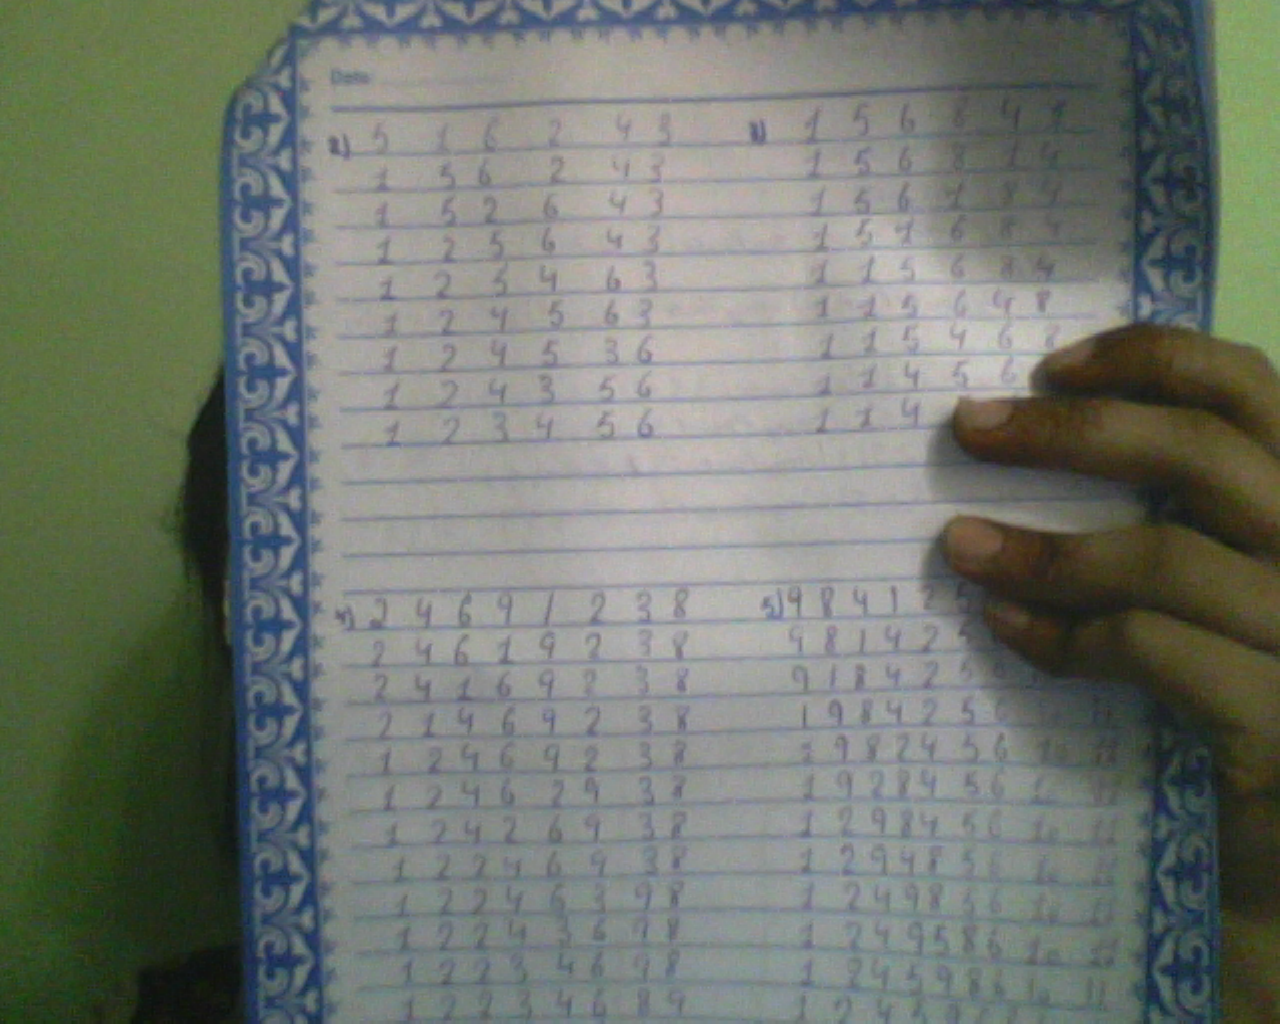 Date
2) 5 1 6 2 4 3
1 5 6 2 4 3
1 5 2 6 4 3
1 2 5 6 4 3
1 2 5 4 6 3
1 2 4 5 6 3
1 2 4 5 3 6
1 2 4 3 5 6
1 2 3 4 5 6
1 5 6 8 4 1
1 5 6 8 1 4
1 5 6 1 8 4
1 5 1 6 8 4
1 1 5 6 8 4
1 1 5 6 4 8
1 1 5 4 6 8
1 1 4 5 6
1 1 4
2 4 6 9 1 2 3 8
2 4 6 1 9 2 3 8
2 4 1 6 9 2 3 8
2 1 4 6 9 2 3 8
1 2 4 6 9 2 3 8
1 2 4 6 2 9 3 8
1 2 4 2 6 9 3 8
1 2 2 4 6 9 3 8
1 2 2 4 6 3 9 8
1 2 2 4 3 6 9 8
1 2 2 3 4 6 9 8
1 2 2 3 4 6 8 9
5) 9 8 4 1 2 5
9 8 1 4 2 5
9 1 8 4 2 5 6
1 9 8 4 2 5 6 10 11
1 9 8 2 4 5 6 10 11
1 9 2 8 4 5 6 10 11
1 2 9 8 4 5 6 10 11
1 2 9 4 8 5 6 10 11
1 2 4 9 8 5 6 10 11
1 2 4 9 5 8 6 10 11
1 2 4 5 9 8 6 10 11
1 2 4 5 9